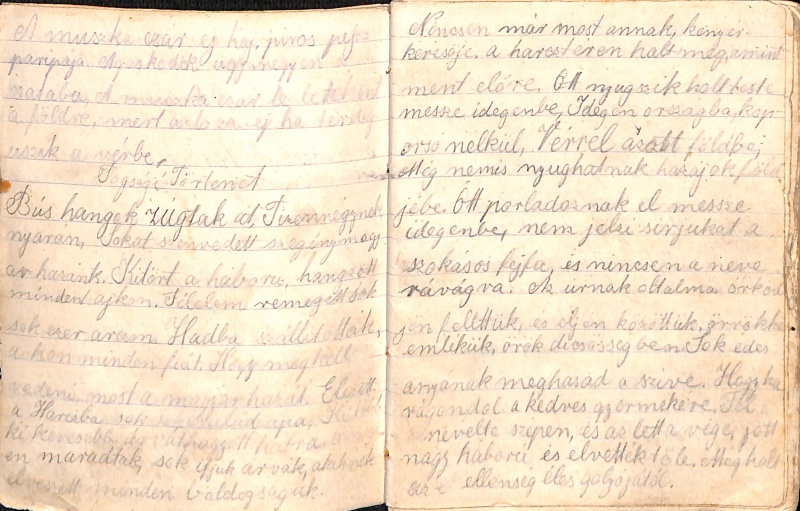 A muszka czár ej haj, piros pej
paripája úgy megyen a
A muszka czár le
a földre, mert a lova ej ha térdig
uszik a vérbe,
Igaz Történet
Bús hangok zúgtak át, Tizennégynek
nyarán, Sokat szenvedett szegény magy
ar hazánk. Kitört a háboru, hangzott
minden ajkon. Félelem remegett sok
sok ezer arcon. Hadba szállitották,
a hon minden fiát. Hogy meg kell
vedeni, most a magyar hazát. Elesett
a Harczba sok családapa, Ki
ki kevesebb árvát hagyott hátra
en maradtak, sok ifjak árvák, akiknek
elveszett minden boldogságuk.
Nincsen már most annak, kenyer
keresöje. a harcztéren halt meg, amint
ment elöre. Ott nyugszik holt teste
messze idegenbe, Idegen országba, kop-
orso nélkül, Vérrel ázott földbe,
Még nemis nyughatnak hazájok föld
jébe. Ott porladoznak el messze
idegenbe, nem jelzi sirjukat a
szokásos fejfa, és nincsen a neve
rávágva. Az urnak oltalma örköd
jön felttük, és éljen közöttük, örrökke
emlékük, örök dicsösségben. Sok édes
anyának meghasad a szive. Hogy ha
rágondol a kedves gyermekére, Fel
nevelte szépen, és az lett a vége, jött
nagy háboru és elvették töle. Meg holt
az ellenség éles golyójától.